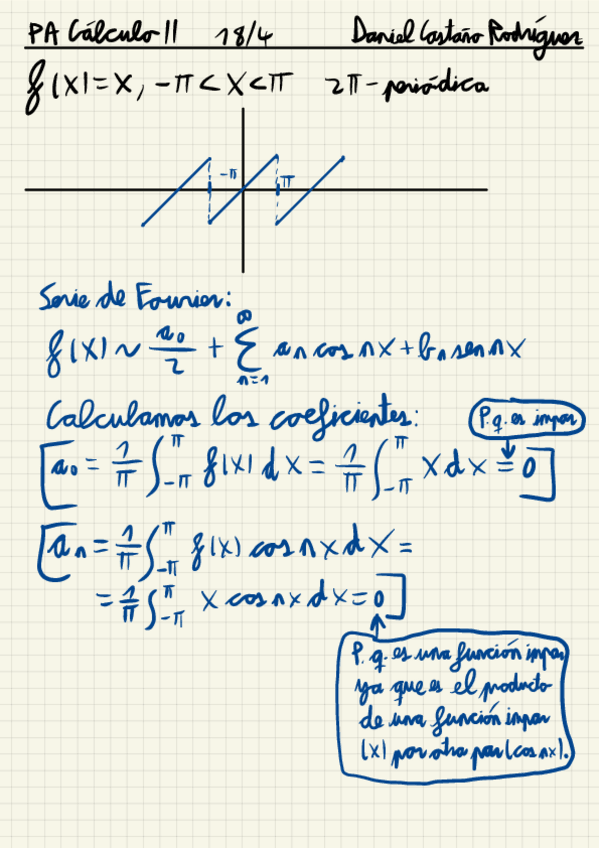 PA Cálculo II 18/4 Daniel Castaño Rodríguez
f(x)=x, -π<x<π 2π-periódica
-π π
Serie de Fourier:
f(x) ~ a₀/2 + ∑_{n=1}^{∞} aₙ cos nx + bₙ sen nx
Calculamos los coeficientes: P.q. es impar
[a₀ = 1/π ∫_{-π}^{π} f(x) dx = 1/π ∫_{-π}^{π} x dx = 0]
[aₙ = 1/π ∫_{-π}^{π} f(x) cos nx dx =
= 1/π ∫_{-π}^{π} x cos nx dx = 0]
P.q. es una función impar
ya que es el producto
de una función impar
(x) por otra par (cos nx).